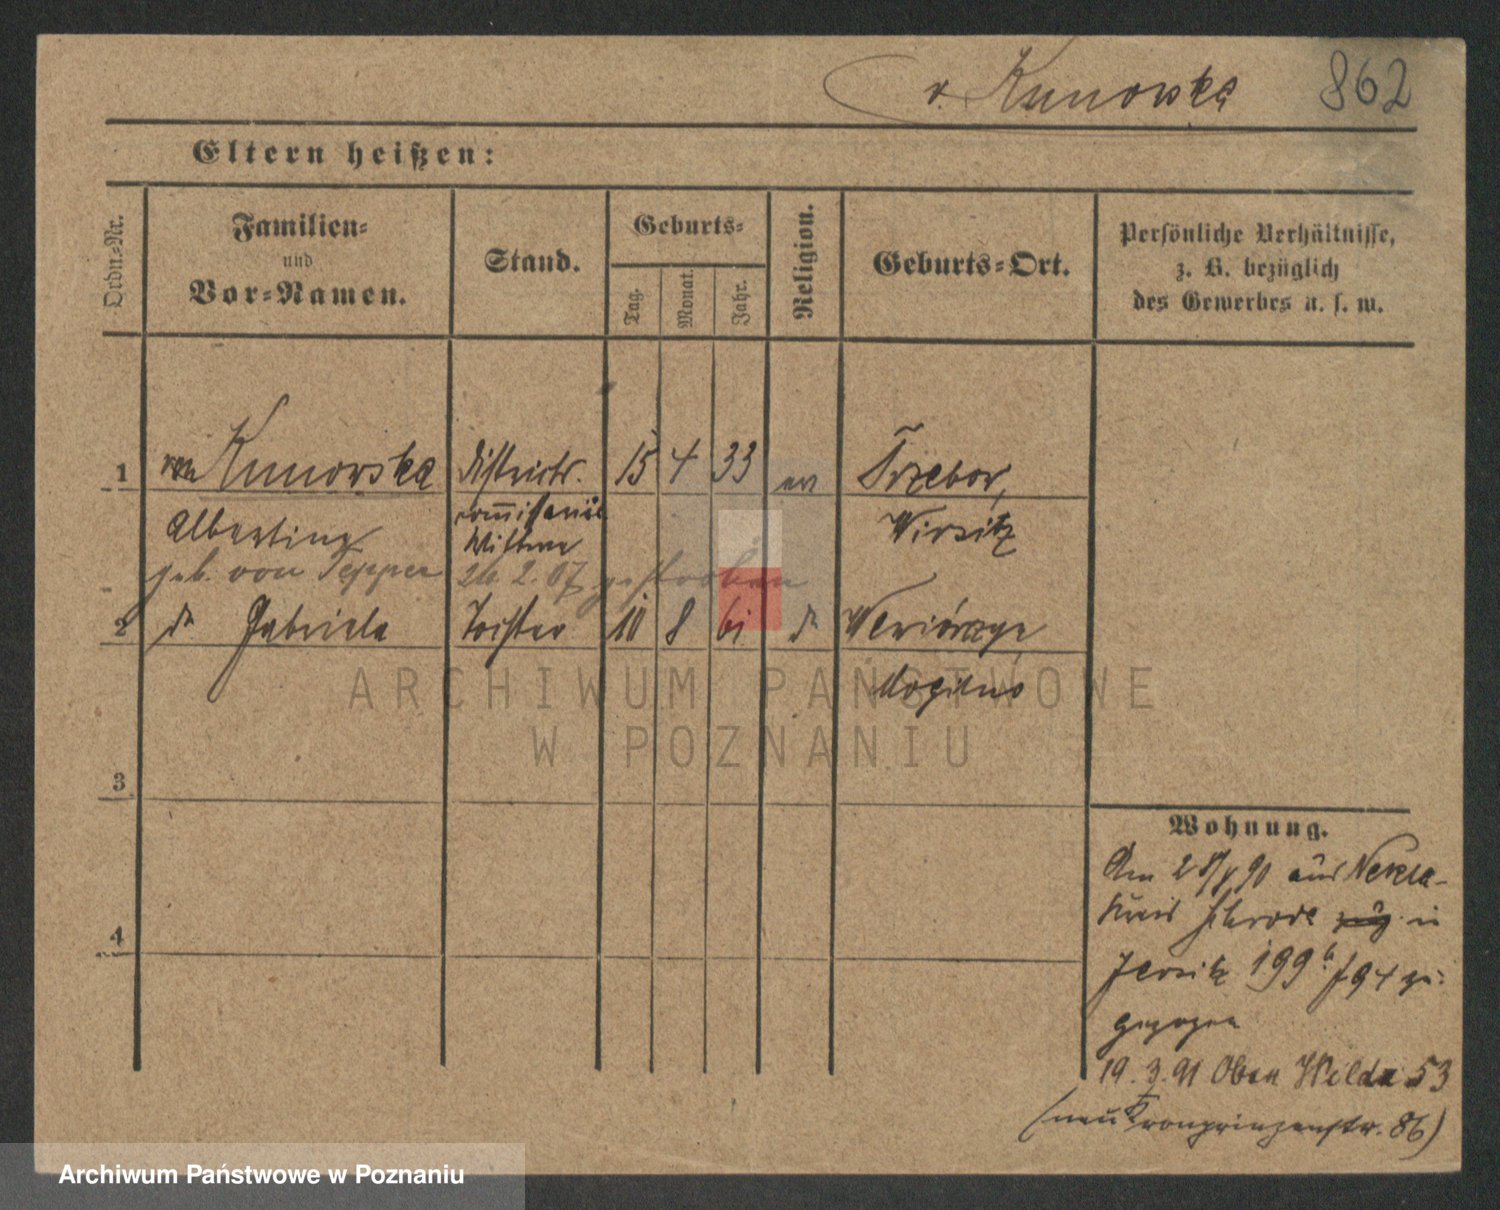 v. Kunowska 862
Eltern heißen:
Ordn.-Nr.
Familien-
und
Vor-Namen.
Stand.
Geburts-
Tag.
Monat.
Jahr.
Religion.
Geburts-Ort.
Persönliche Verhältnisse,
z. B. bezüglich
des Gewerbes u. s. w.
1 von Kunowska Districts. 15 4 33 ev Trzebon,
Albertine commissariats Wirsitz
Wittwe
geb. von Tepper 26.2.07 gestorben
2 do Gabriela Tochter 10 8 61 do
Mogilno
3
4
Wohnung.
Am 28/8 90 aus Nekla-
Kreis Schroda in
Jersitz 199b zu-
gezogen
19.3.91 Ober Wilda 53
(neu Kronprinzenstr. 86)
ARCHIWUM PAŃSTWOWE
W POZNANIU
Archiwum Państwowe w Poznaniu